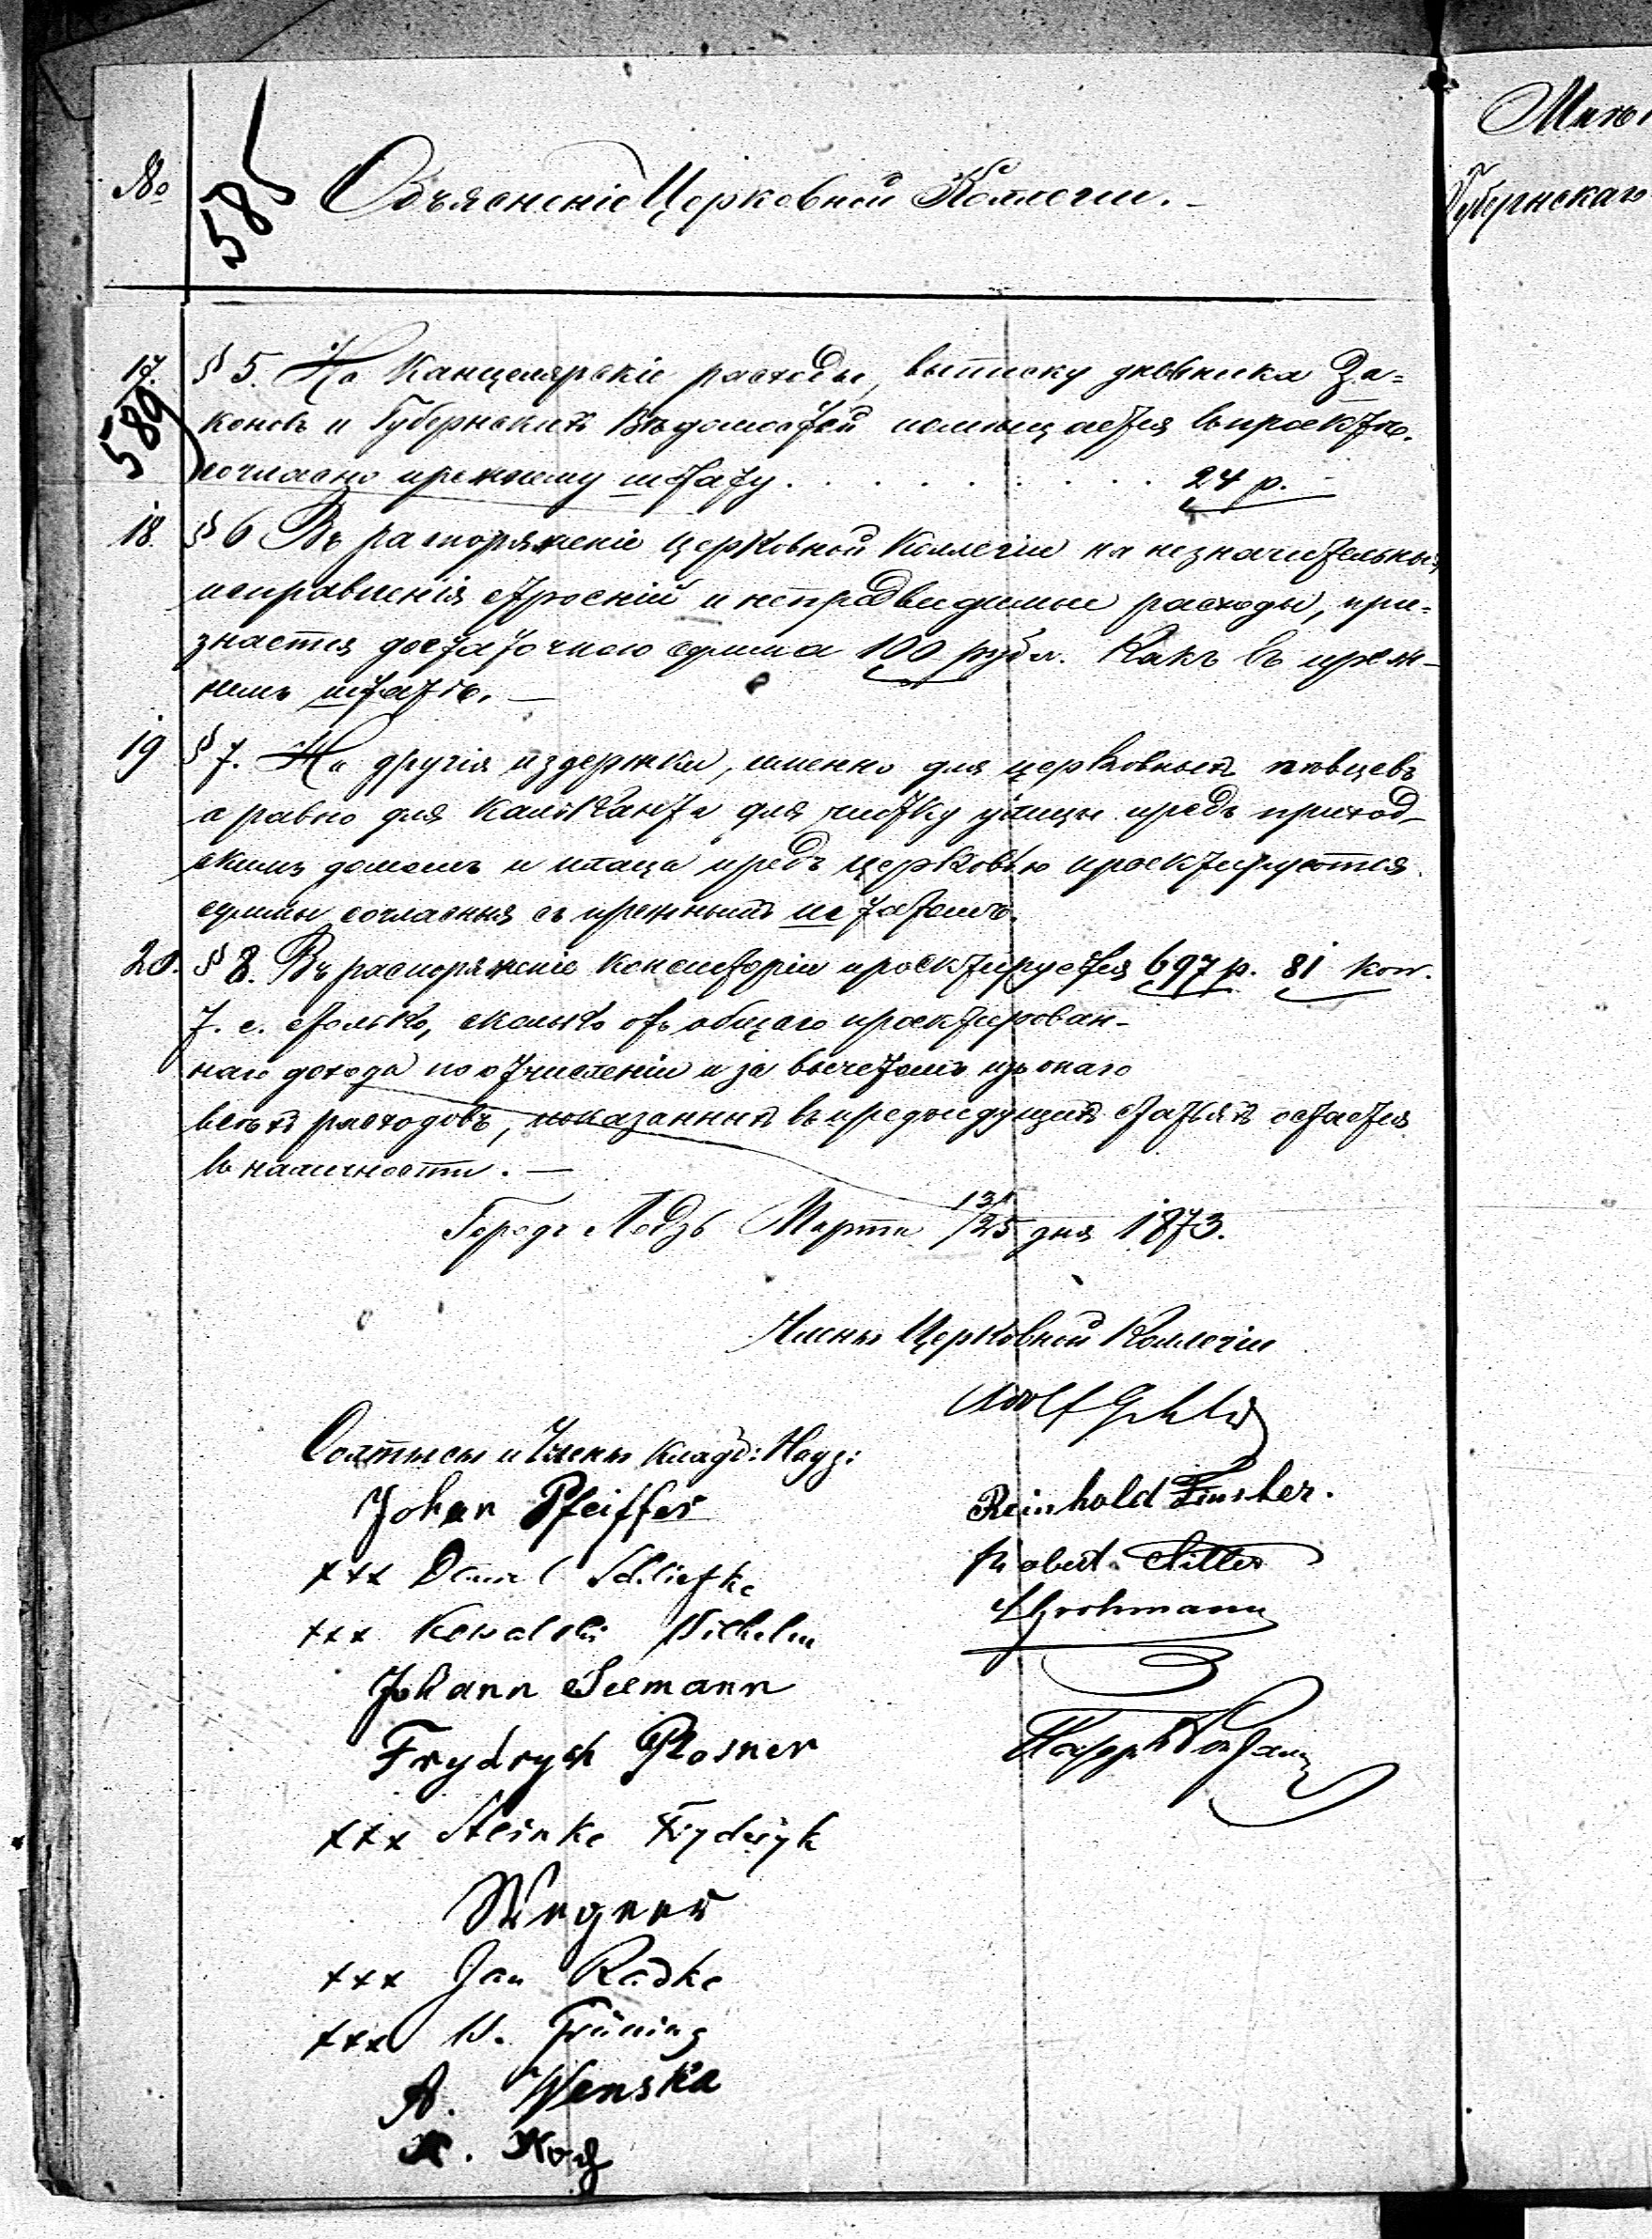 № 585 Объясненіе Церковной Коллегіи. –
Губернскаго
17. § 5. На Канцелярскіе расходы, выписку дневника За=
589 коновъ и Губернскихъ Вѣдомостей помѣщается въ проектѣ.
согласно прежнему штату . . . . . . . . . 24 р. –
18. § 6 Въ распоряженіе церковной Коллегіи на незначительныя
исправленія строеній и непредвидимые расходы, при=
знается достаточною сумма 100 рубл. Какъ въ преж-
немъ штатѣ. –
19 § 7. На другія издержки, именно для церковныхъ пѣвцевъ
а равно для Кальканта для чистку улицы предъ приход-
скимъ домомъ и плаца предъ церковью проектируются
суммы согласныя съ прежнымъ штатомъ.
20. § 8. Въ распоряженіе Консисторіи проектируется 697 р. 81 коп.
т. е. столько, сколько отъ общаго проектирован-
наго дохода по отчисленіи и за вычетомъ изъ онаго
всѣхъ расходовъ, показанныхъ въ предъидущихъ статьяхъ остается
въ наличности. –
Городъ Лодзь Марта 13/25 дня 1873.
Члены Церковной Коллегіи
Adolf
Солтысы и Члены Кладб: Надз:
Johan Pfeiffer
Reinhold Finster.
xxx Daniel Schliefke
Robert
xxx Kowalski Wilhelm
Grohmann
Johann Seemann
Frydrych Rosner
xxx Steinke Frydryk
Wegner
xxx Jan Radke
xxx W. Grüning
A. Wenska
K. Koch